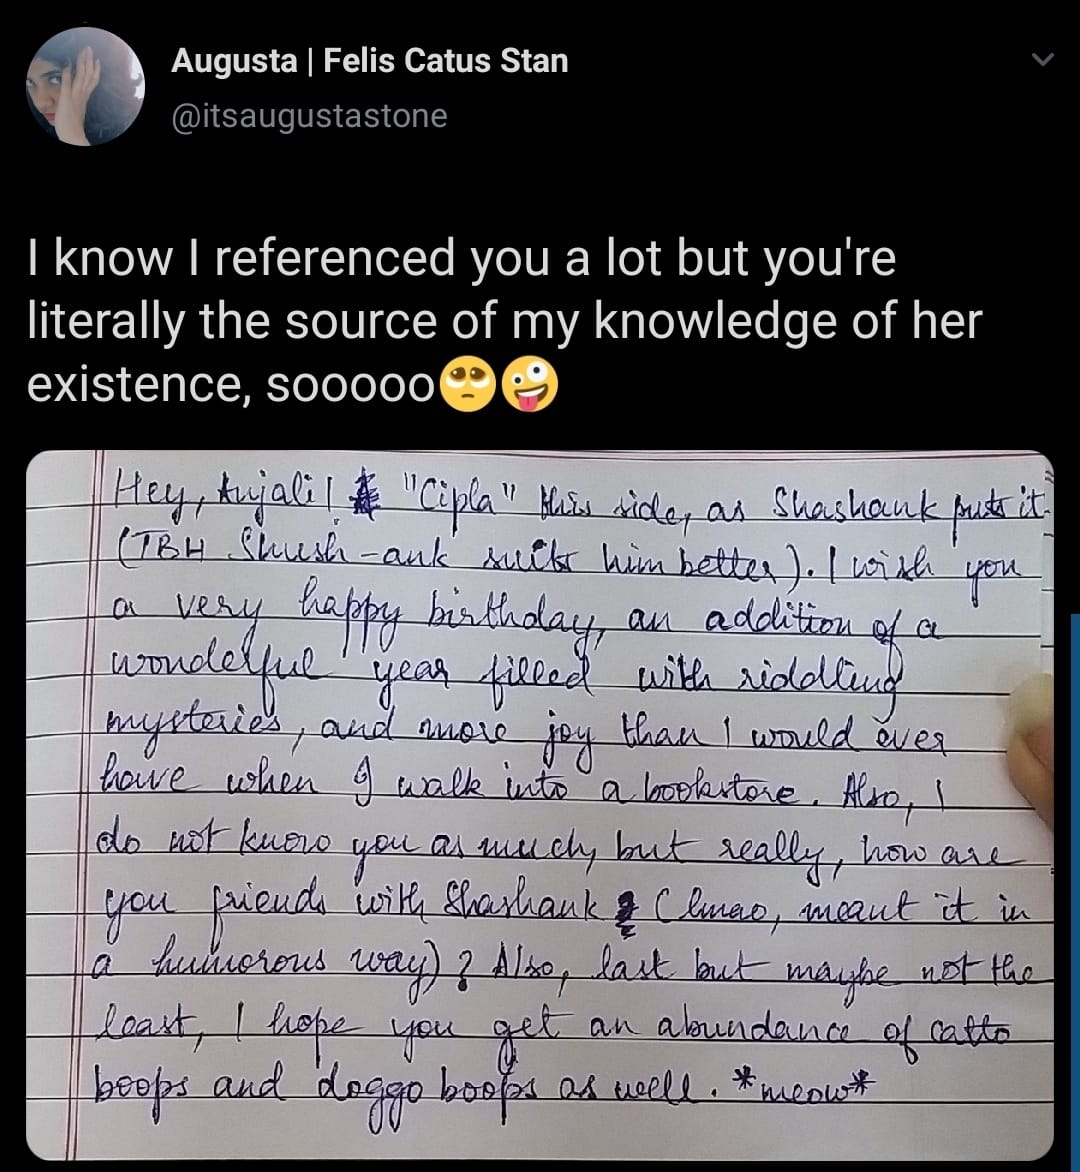 Augusta | Felis Catus Stan
@itsaugustastone
I know I referenced you a lot but you're
literally the source of my knowledge of her
existence, sooooo🥺🤪
Hey, Anjali! "Cipla" this side, as Shashank puts it
(TBH Shush-ank suits him better). I wish you
a very happy birthday, an addition of a
wonderful year filled with riddling
mysteries, and more joy than I would ever
have when I walk into a bookstore. Also, I
do not know you as much, but really, how are
you friends with Shashank (lmao, meant it in
a humorous way)? Also, last but maybe not the
least, I hope you get an abundance of catto
boops and doggo boops as well. *meow*